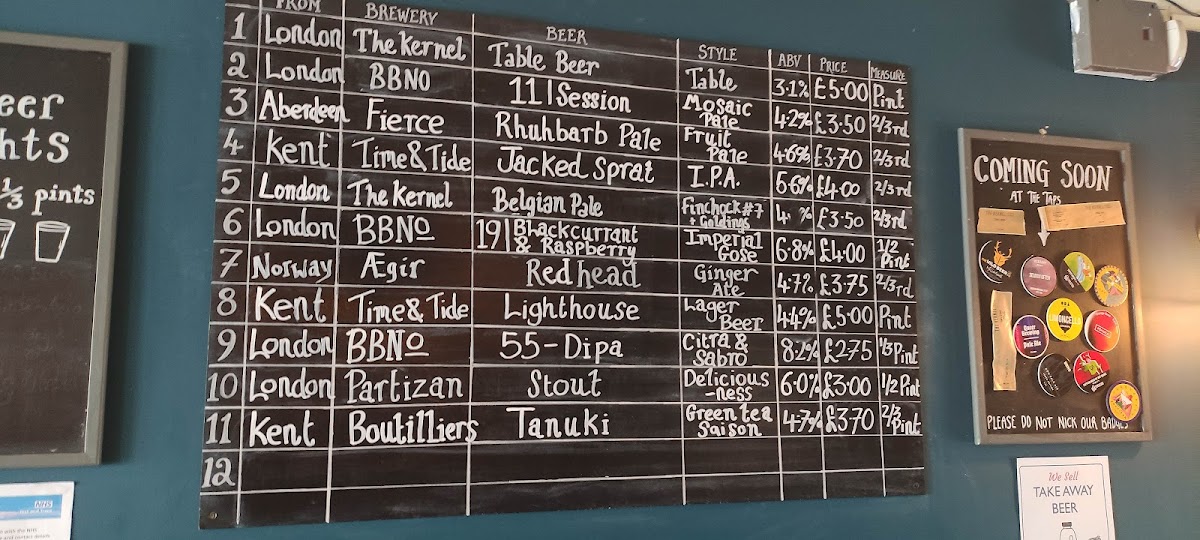 eer
hts
⅓ pints
FROM BREWERY BEER STYLE ABV PRICE MEASURE
1 London The Kernel Table Beer Table 3.1% £5.00 Pint
2 London BBNO 11|Session Mosaic Pale 4.2% £3.50 2/3rd
3 Aberdeen Fierce Rhuhbarb Pale Fruit Pale 4.6% £3.70 2/3rd
4 Kent Time&Tide Jacked Sprat I.P.A. 5.6% £4.00 2/3rd
5 London The Kernel Belgian Pale + Goldings £3.50 2/3rd
6 London BBNo 19|Blackcurrant & Raspberry Imperial Gose 6.8% £4.00 1/2 Pint
7 Norway Ægir Red head Ginger Ale 4.7% £3.75 2/3rd
8 Kent Time&Tide Lighthouse Lager Beer 4.4% £5.00 Pint
9 London BBNo 55-Dipa Citra & Sabro 8.2% £2.75 1/3 Pint
10 London Partizan Stout Delicious-ness 6.0% £3.00 1/2 Pint
11 Kent Boutilliers Tanuki Green tea Saison 4.7% £3.70 2/3 Pint
12
COMING SOON
AT THE TAPS
PLEASE DO NOT NICK OUR BADGES
We Sell
TAKE AWAY
BEER
NHS